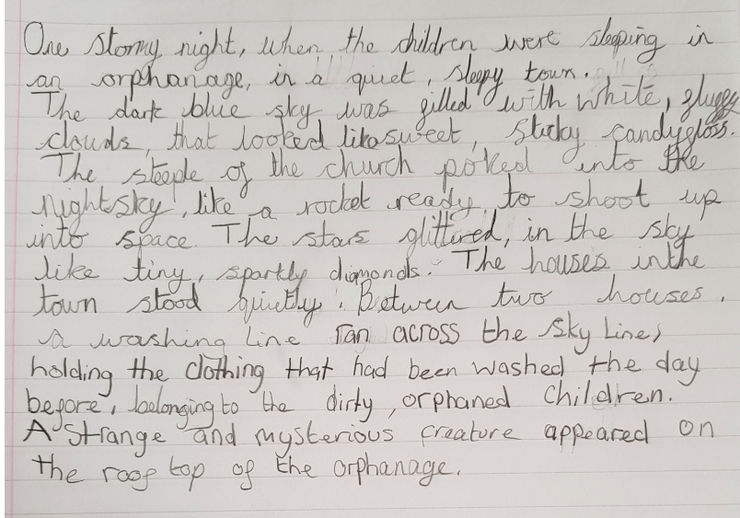 One stormy night, when the children were sleeping in
an orphanage, in a quiet, sleepy town.
The dark blue sky was filled with white, fluffy
clouds, that looked like sweet, sticky candyfloss.
The steeple of the church poked into the
nightsky, like a rocket ready to shoot up
into space. The stars glittered, in the sky
like tiny, sparkly diamonds. The houses in the
town stood quietly. Between two houses,
a washing line ran across the sky line,
holding the clothing that had been washed the day
before, belonging to the dirty, orphaned children.
A strange and mysterious creature appeared on
the roof top of the orphanage.